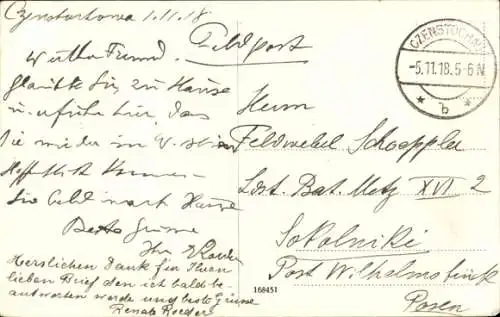 Czenstochowa 1.11.18
Feldpost
Werther Freund.
glaubte Sie zu Hause
u. erfuhr hier, das
Sie wieder im
Hofftlich kommen
Sie bald nach Hause
Beste Grüsse
Ihr
Herzlichen Dank für Ihren
lieben Brief den ich bald be-
antworten werde und beste Grüsse
Renate Roeder
CZENSTOCHAU
-5.11.18.5-6N
* b *
Herrn
Feldwebel Schoeppler
Ldst. Bat. Metz XVI 2
Sokolniki
Post Wilhelmsbrück
Posen
168451